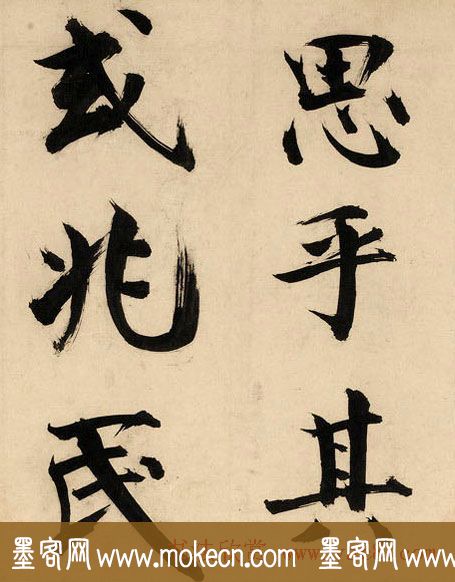 思乎其
或兆民
墨客网 www.mokecn.com 墨客网 www